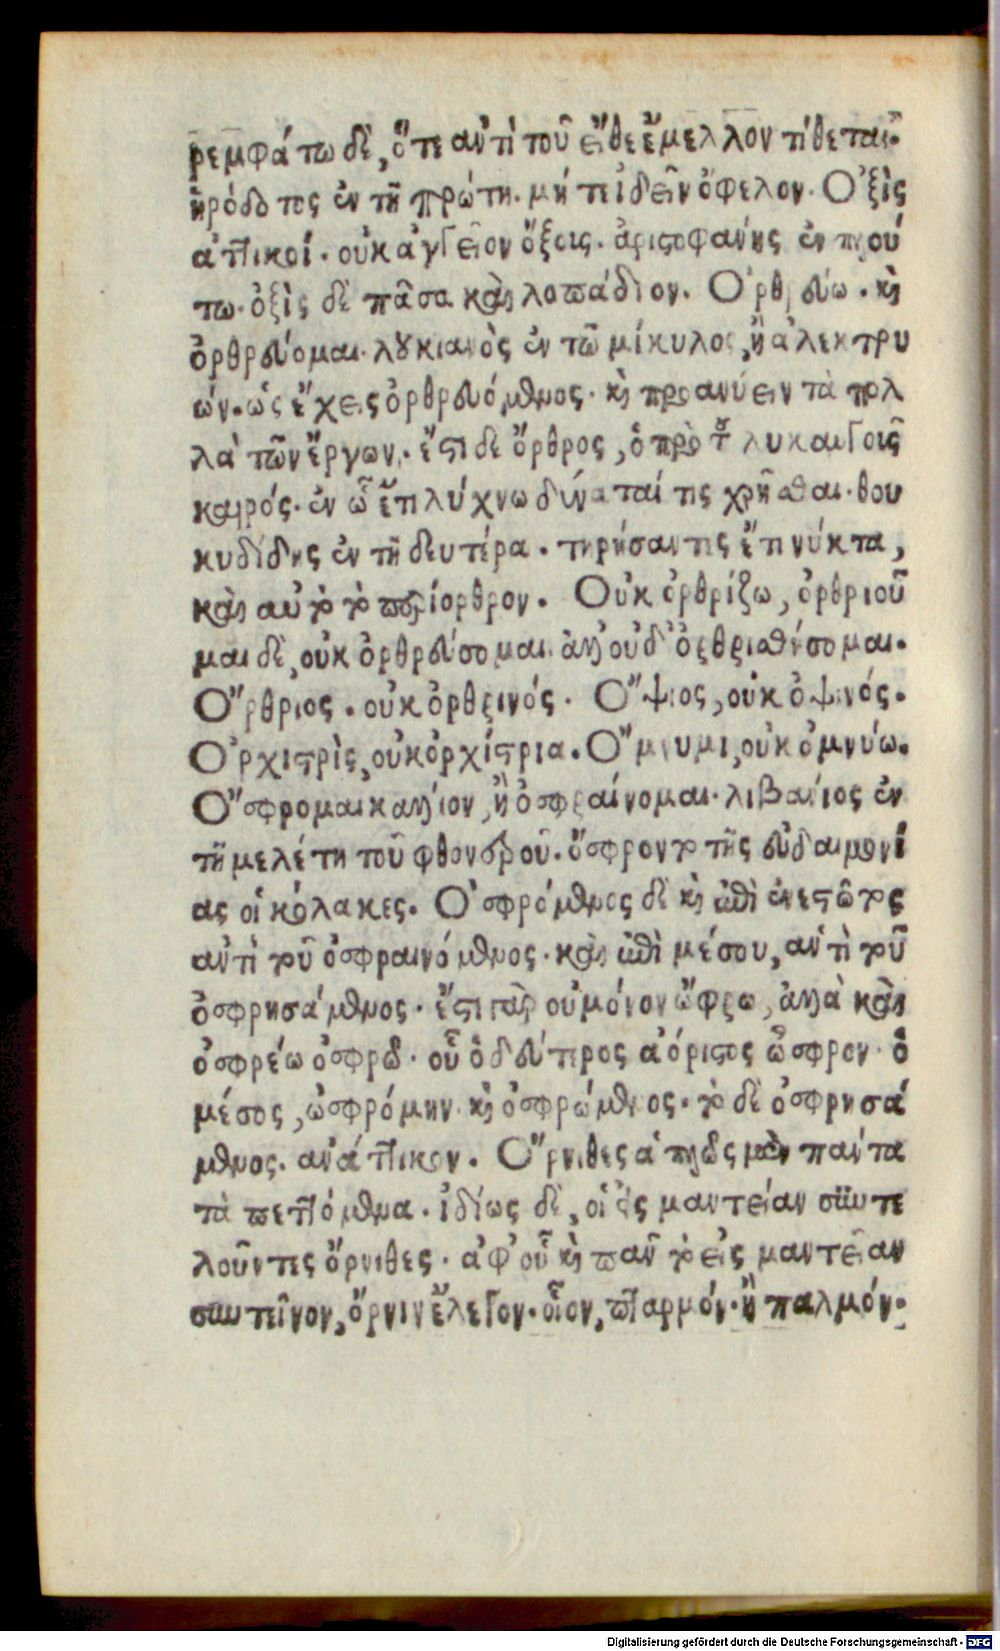 ρεμφάτω δὲ, ὅτε ἀντὶ τοῦ εἴθε ἔμελλον τίθεται.
ἡρόδοτος ἐν τῇ πρώτῃ. μή τι ἰδεῖν ὄφελον. Ὀξὶς
ἀττικοί. οὐκ ἀγγεῖον ὄξεις. ἀριστοφάνης ἐν πλού
τω. ὀξὶς δὲ πᾶσα καὶ λοπάδιον. Ὀρθρεύω. καὶ
ὀρθρεύομαι. λουκιανὸς ἐν τῶ μίκυλος, ἢ ἀλεκτρυ
ών. ὡς ἔχεις ὀρθρευόμενος. καὶ προανύειν τὰ πολ
λὰ τῶν ἔργων. ἔστι δὲ ὄρθρος, ὁ πρὸ τοῦ λυκαυγοῦς
καιρός. ἐν ὧ ἔτι λύχνω δύναταί τις χρῆσθαι. θου
κυδίδης ἐν τῇ δευτέρα. τηρήσαντες ἔτι νύκτα,
καὶ αὐτὸ τὸ περίορθρον. Οὐκ ὀρθρίζω, ὀρθριοῦ
μαι δὲ, οὐκ ὀρθρεύσομαι. ἀλλ' οὐδ' ὀρθριασθήσομαι.
Ὄρθριος. οὐκ ὀρθρινός. Ὄψιος, οὐκ ὀψινός.
Ὀρχιστρὶς, οὐκ ὀρχίστρια. Ὄμνυμι, οὐκ ὀμνύω.
Ὄσφρομαι κάλλιον, ἢ ὀσφραίνομαι. λιβάνιος ἐν
τῇ μελέτη τοῦ φθονεροῦ. ὄσφροντο τῆς εὐδαιμονί
ας οἱ κόλακες. Ὀσφρόμενος δὲ καὶ ἐπὶ ἐνεστῶτος
ἀντὶ τοῦ ὀσφραινόμενος. καὶ ἐπὶ μέσου, ἀντὶ τοῦ
ὀσφρησάμενος. ἔστι γὰρ οὐ μόνον ὤφρω, ἀλλὰ καὶ
ὀσφρέω ὀσφρῶ. οὗ ὁ δεύτερος ἀόριστος ὦσφρον. ὁ
μέσος, ὠσφρόμην. καὶ ὀσφρώμενος. τὸ δὲ ὀσφρησά
μενος. ἀνάττικον. Ὄρνιθες ἁπλῶς μὲν πάντα
τὰ πεττόμενα. ἰδίως δὲ, οἱ εἰς μαντείαν συντε
λοῦντες ὄρνιθες. ἀφ' οὗ καὶ πᾶν τὸ εἰς μαντεῖαν
συντεῖνον, ὄρνιν ἔλεγον. οἷον, πταρμόν. ἢ παλμόν.
Digitalisierung gefördert durch die Deutsche Forschungsgemeinschaft - DFG